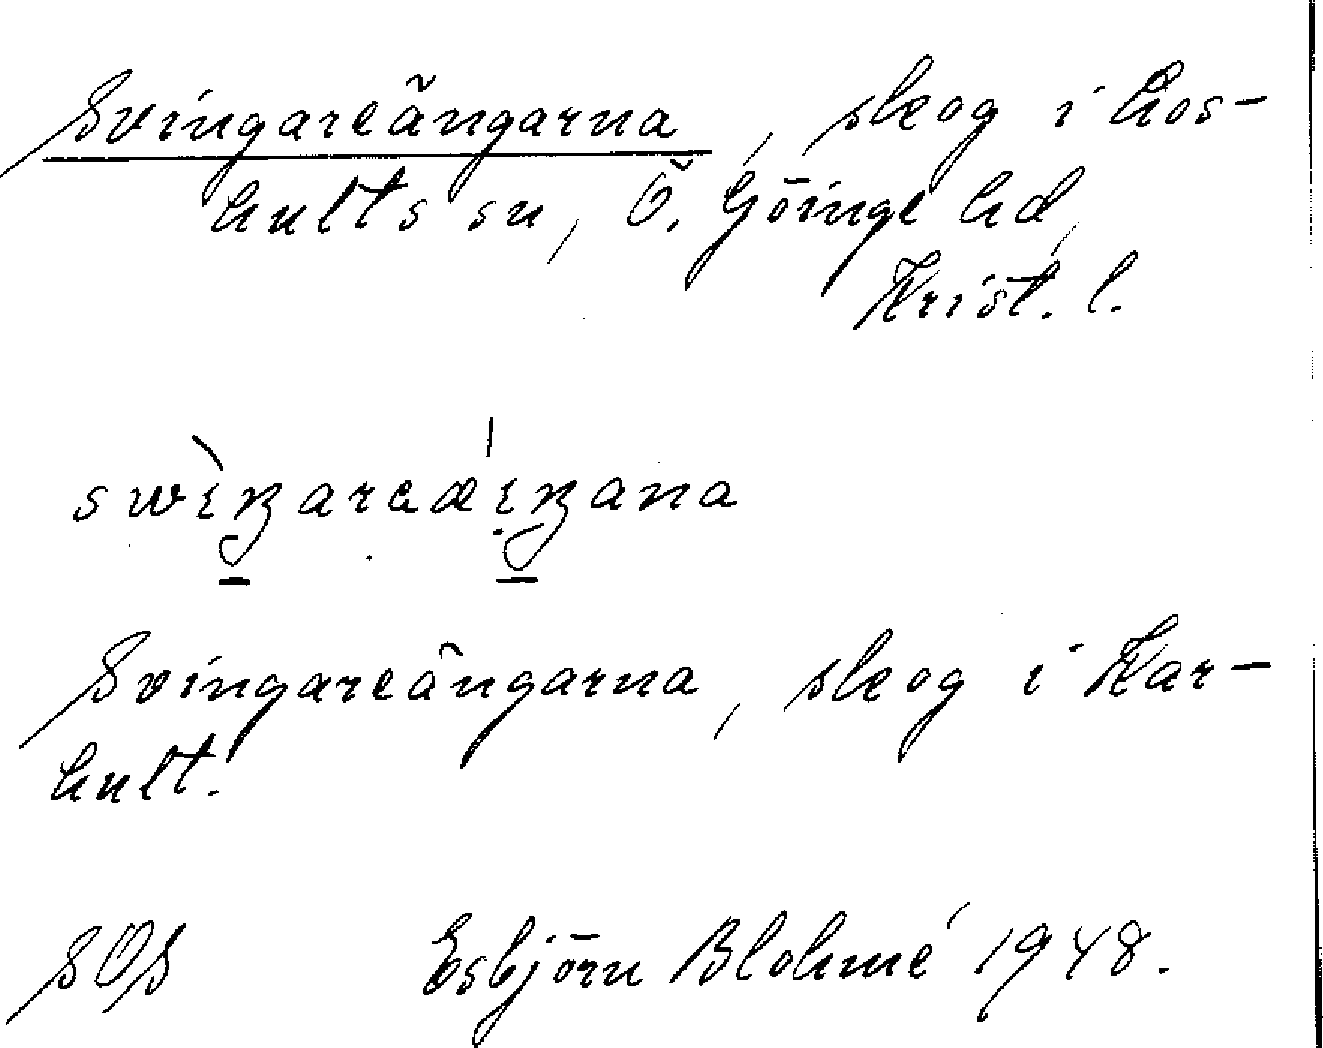 Svingareängarna, skog i Los-
hults sn, Ö. Göinge hd,
Krist. l.
Svingareängarna, skog i Kar-
hult.
SOS Esbjörn Blohmé 1948.